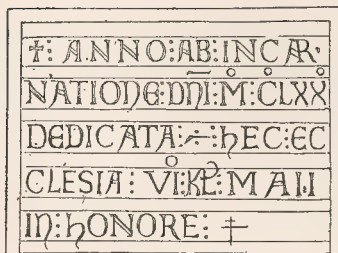 ✝: ANNO:AB:INCAR·
NATIONE:DNI:M:CLXX
DEDICATA:⁓:HEC:EC
CLESIA: VI:KL:MAII
IN:HONORE: ‡